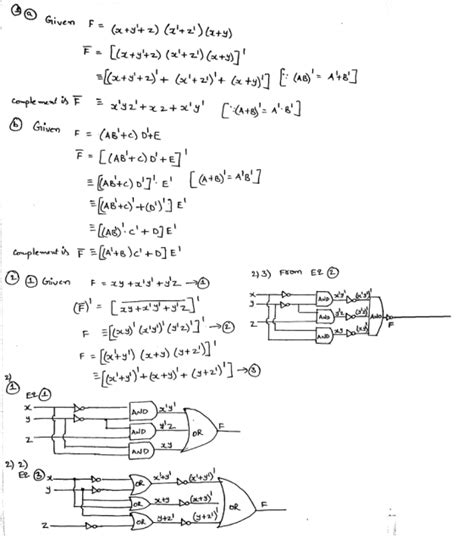 ① ⓐ Given F = (x+y'+z) (x'+z') (x+y)
F̅ = [(x+y'+z) (x'+z') (x+y)]'
≡ [(x+y'+z)' + (x'+z')' + (x+y)'] [∵ (AB)' = A'+B']
complement is F̅ ≡ x'yz' + xz + x'y' [∵ (A+B)' = A'·B']
ⓑ Given F = (AB'+C) D'+E
F̅ = [(AB'+C) D' + E]'
≡ [(AB'+C) D']' · E' [(A+B)' = A'B']
≡ [(AB'+C)' + (D')'] E'
≡ [(AB')'·C' + D] E'
complement is F̅ ≡ [(A'+B)C' + D] E'
② ① Given F = xy + x'y' + y'z → ①
(F̅)' = [xy + x'y' + y'z]'
F ≡ [(xy)' (x'y')' (y'z)']' → ②
F = [(x'+y') (x+y) (y+z')]'
≡ [(x'+y')' + (x+y)' + (y+z')'] → ③
2) 3) From EQ ②
x
y
z
AND x'y' (x'y')'
AND y'z (y'z)'
AND xy (xy)'
AND
F
2)
① EQ ①
x
y
z
AND x'y'
AND y'z
AND xy
OR F
2) 2)
EQ ③
x
y
z
OR x'+y' (x'+y')'
OR x+y (x+y)'
OR y+z' (y+z')'
OR F